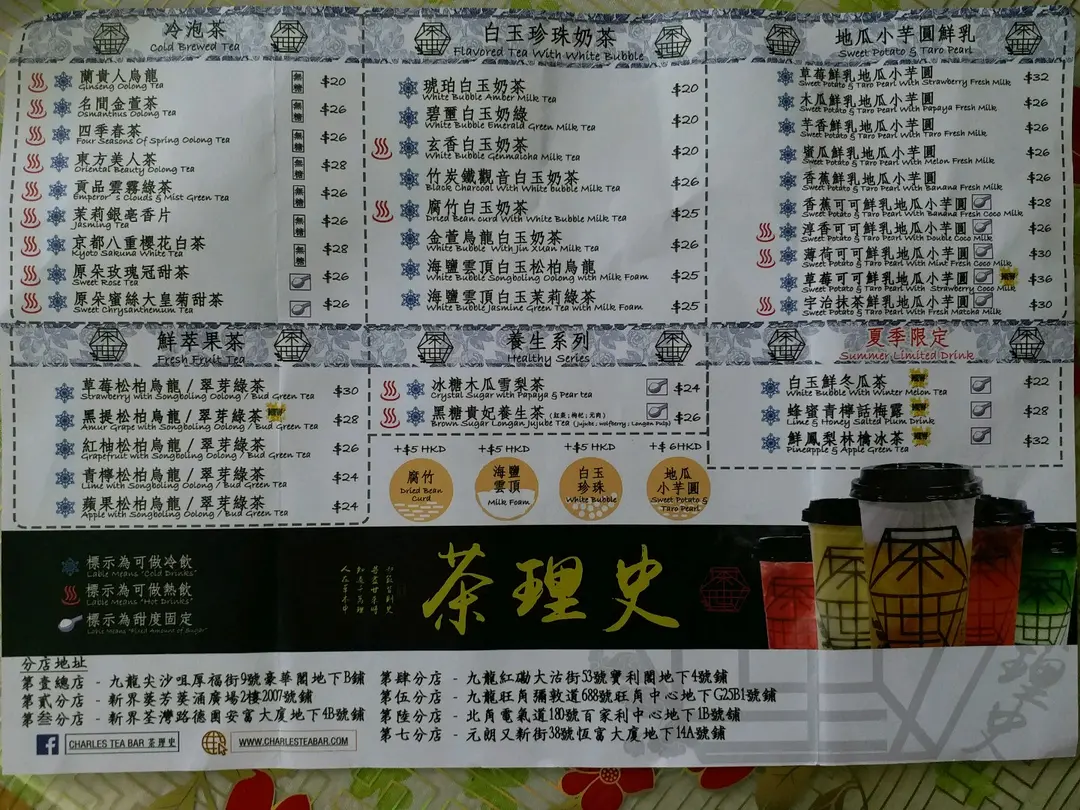 冷泡茶
Cold Brewed Tea
蘭貴人烏龍 無糖 $20
Ginseng Oolong Tea
名間金萱茶 無糖 $26
Osmanthus Oolong Tea
四季春茶 無糖 $26
Four Seasons Of Spring Oolong Tea
東方美人茶 無糖 $28
Oriental Beauty Oolong Tea
貢品雲霧綠茶 無糖 $26
Emperor's Clouds & Mist Green Tea
茉莉銀亳香片 無糖 $26
Jasming Tea
京都八重櫻花白茶 無糖 $28
Kyoto Sakuna White Tea
原朵玫瑰冠甜茶 $26
Sweet Rose Tea
原朵蜜絲大皇菊甜茶 $26
Sweet Chrysanthemum Tea
白玉珍珠奶茶
Flavored Tea With White Bubble
琥珀白玉奶茶 $20
White Bubble Amber Milk Tea
碧璽白玉奶綠 $20
White Bubble Emerald Green Milk Tea
玄香白玉奶茶 $20
White Bubble Genmaicha Milk Tea
竹炭鐵觀音白玉奶茶 $26
Black Charcoal With White bubble Milk Tea
腐竹白玉奶茶 $25
Dried Bean curd With White Bubble Milk Tea
金萱烏龍白玉奶茶 $26
White Bubble With Jin Xuan Milk Tea
海鹽雲頂白玉松柏烏龍 $25
White Bubble Songboling Oolong with Milk Foam
海鹽雲頂白玉茉莉綠茶 $25
White Bubble Jasmine Green Tea with Milk Foam
地瓜小芋圓鮮乳
Sweet Potato & Taro Pearl
草莓鮮乳地瓜小芋圓 $32
Sweet Potato & Taro Pearl With Strawberry Fresh Milk
木瓜鮮乳地瓜小芋圓 $26
Sweet Potato & Taro Pearl With Papaya Fresh Milk
芋香鮮乳地瓜小芋圓 $26
Sweet Potato & Taro Pearl With Taro Fresh Milk
蜜瓜鮮乳地瓜小芋圓 $26
Sweet Potato & Taro Pearl With Melon Fresh Milk
香蕉鮮乳地瓜小芋圓 $26
Sweet Potato & Taro Pearl With Banana Fresh Milk
香蕉可可鮮乳地瓜小芋圓 $28
Sweet Potato & Taro Pearl With Banana Fresh Coco Milk
淳香可可鮮乳地瓜小芋圓 $26
Sweet Potato & Taro Pearl With Double Coco Milk
薄荷可可鮮乳地瓜小芋圓 $30
Sweet Potato & Taro Pearl With Mint Fresh Coco Milk
草莓可可鮮乳地瓜小芋圓 NEW $36
Sweet Potato & Taro Pearl With Strawberry Coco Milk
宇治抹茶鮮乳地瓜小芋圓 $30
Sweet Potato & Taro Pearl With Fresh Matcha Milk
鮮萃果茶
Fresh Fruit Tea
草莓松柏烏龍 / 翠芽綠茶 $30
Strawberry with Songboling Oolong / Bud Green Tea
黑提松柏烏龍 / 翠芽綠茶 NEW $28
Amur Grape with Songboling Oolong / Bud Green Tea
紅柚松柏烏龍 / 翠芽綠茶 $26
Grapefruit with Songboling Oolong / Bud Green Tea
青檸松柏烏龍 / 翠芽綠茶 $24
Lime with Songboling Oolong / Bud Green Tea
蘋果松柏烏龍 / 翠芽綠茶 $24
Apple with Songboling Oolong / Bud Green Tea
養生系列
Healthy Series
冰糖木瓜雪梨茶 $24
Crystal Sugar with Papaya & Pear tea
黑糖貴妃養生茶 (紅棗;枸杞;元肉) $26
Brown Sugar Longan Jujube Tea (Jujube; Wolfberry; Longan Pulp)
+$5 HKD +$5 HKD +$5 HKD +$6HKD
腐竹
Dried Bean Curd
海鹽雲頂
Milk Foam
白玉珍珠
White Bubble
地瓜小芋圓
Sweet Potato & Taro Pearl
夏季限定
Summer Limited Drink
白玉鮮冬瓜茶 NEW $22
White Bubble With Winter Melon Tea
蜂蜜青檸話梅露 NEW $28
Lime & Honey Salted Plum Drink
鮮鳳梨林檎冰茶 NEW $32
Pineapple & Apple Green Tea
標示為可做冷飲
Lable Means "Cold Drinks"
標示為可做熱飲
Lable Means "Hot Drinks"
標示為甜度固定
Lable Means "Fixed Amount of Sugar"
茶理史
分店地址
第壹總店 - 九龍尖沙咀厚福街9號豪華閣地下B鋪
第貳分店 - 新界葵芳葵涌廣場2樓2007號鋪
第叁分店 - 新界荃灣路德圍安富大廈地下4B號鋪
第肆分店 - 九龍紅磡大沽街53號寶利閣地下4號鋪
第伍分店 - 九龍旺角彌敦道688號旺角中心地下G25B1號鋪
第陸分店 - 北角電氣道180號百家利中心地下1B號鋪
第七分店 - 元朗又新街38號恆富大廈地下14A號鋪
CHARLES TEA BAR 茶理史
WWW.CHARLESTEABAR.COM
理史